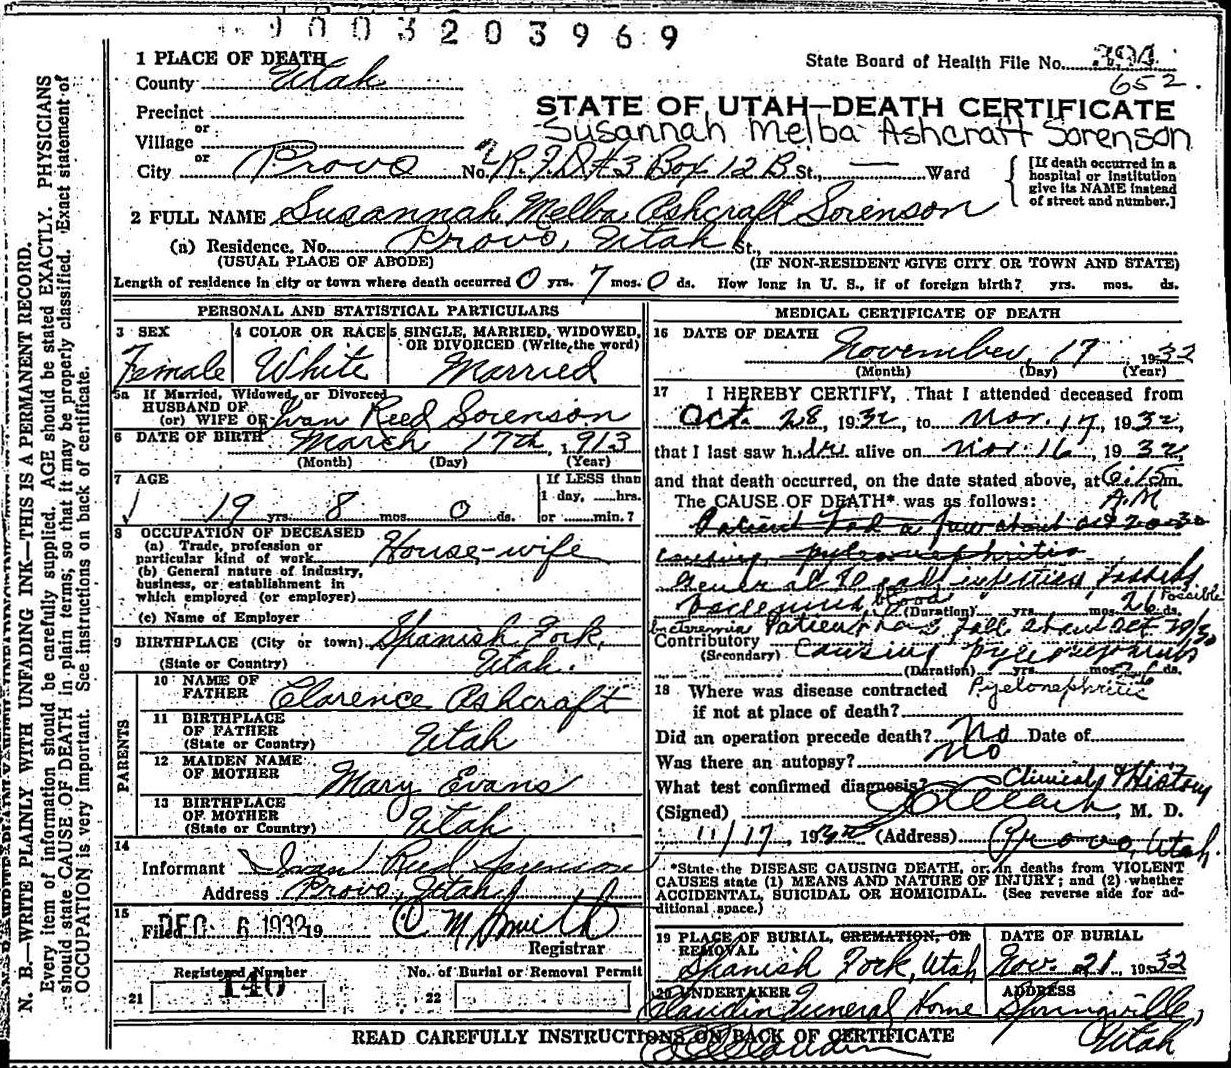 9003203969
1 PLACE OF DEATH
State Board of Health File No. 394
652.
County Utah
STATE OF UTAH—DEATH CERTIFICATE
Precinct
Susannah Melba Ashcraft Sorenson
or
Village
or
City Provo No. R.F.D #3 Box 12 B St., — Ward
[If death occurred in a hospital or institution give its NAME instead of street and number.]
2 FULL NAME Susannah Melba Ashcraft Sorenson
(a) Residence. No. Provo, Utah St.,
(USUAL PLACE OF ABODE) (IF NON-RESIDENT GIVE CITY OR TOWN AND STATE)
Length of residence in city or town where death occurred 0 yrs. 7 mos. 0 ds. How long in U. S., if of foreign birth? yrs. mos. ds.
PERSONAL AND STATISTICAL PARTICULARS
3 SEX
Female
4 COLOR OR RACE
White
5 SINGLE, MARRIED, WIDOWED,
OR DIVORCED (Write the word)
Married
5a If Married, Widowed, or Divorced
HUSBAND OF
(or) WIFE OF Ivan Reed Sorenson
6 DATE OF BIRTH March 17th, 1913
(Month) (Day) (Year)
7 AGE
19 yrs. 8 mos. 0 ds.
If LESS than
1 day, hrs.
or min.?
8 OCCUPATION OF DECEASED
(a) Trade, profession or
particular kind of work House-wife
(b) General nature of industry,
business, or establishment in
which employed (or employer)
(c) Name of Employer
9 BIRTHPLACE (City or town) Spanish Fork,
(State or Country) Utah.
PARENTS
10 NAME OF
FATHER Clarence Ashcraft
11 BIRTHPLACE
OF FATHER
(State or Country) Utah
12 MAIDEN NAME
OF MOTHER Mary Evans
13 BIRTHPLACE
OF MOTHER
(State or Country) Utah
14
Informant Ivan Reed Sorenson
Address Provo, Utah
15
Filed DEC 6 1932 19 C M Smith
Registrar
Registered Number
21 140
No. of Burial or Removal Permit
22
MEDICAL CERTIFICATE OF DEATH
16 DATE OF DEATH November, 17, 1932
(Month) (Day) (Year)
17 I HEREBY CERTIFY, That I attended deceased from
Oct. 28, 1932, to Nov. 17, 1932,
that I last saw her alive on Nov. 16, 1932,
and that death occurred, on the date stated above, at 6:15 m.
A.M
The CAUSE OF DEATH* was as follows:
Patient had a fall about oct 20-30
causing pyelonephritis
General infection Possible
blood Possible
(Duration) yrs. mos. 26 ds.
Contributory Patient had fall about Oct 20/30
(Secondary) Causing
(Duration) yrs. mos. ds.
Pyelonephritis
18 Where was disease contracted
if not at place of death?
Did an operation precede death? No Date of
Was there an autopsy? No
What test confirmed diagnosis? Clinical & History
(Signed) M. D.
11/17, 1932 (Address) Provo, Utah.
*State the DISEASE CAUSING DEATH, or, in deaths from VIOLENT
CAUSES state (1) MEANS AND NATURE OF INJURY; and (2) whether
ACCIDENTAL, SUICIDAL OR HOMICIDAL. (See reverse side for ad-
ditional space.)
19 PLACE OF BURIAL, CREMATION, OR
REMOVAL
Spanish Fork, Utah
DATE OF BURIAL
Nov. 21, 1932
20 UNDERTAKER
Claudin Funeral Home
ADDRESS
Springville,
Utah
READ CAREFULLY INSTRUCTIONS ON BACK OF CERTIFICATE
N. B.—WRITE PLAINLY WITH UNFADING INK—THIS IS A PERMANENT RECORD.
Every item of information should be carefully supplied. AGE should be stated EXACTLY. PHYSICIANS
should state CAUSE OF DEATH in plain terms, so that it may be properly classified. Exact statement of
OCCUPATION is very important. See instructions on back of certificate.